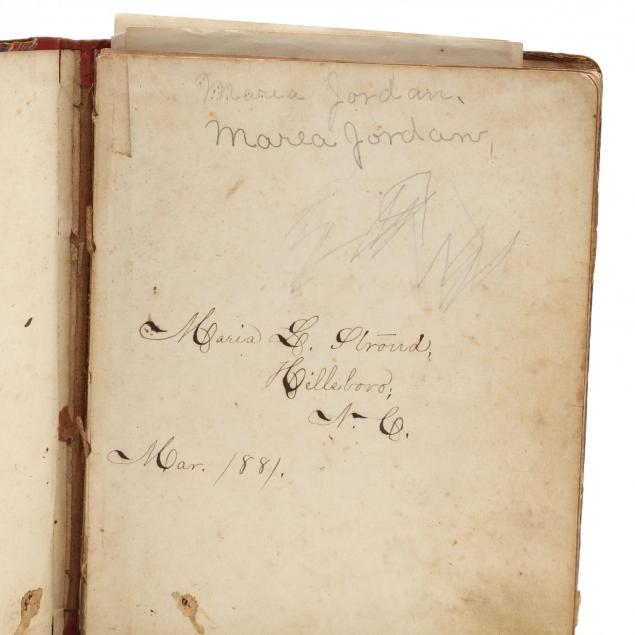 Maria Jordan.
Marea Jordan,
Maria L. Stroud,
Hillsboro,
N. C.
Mar. 1881.